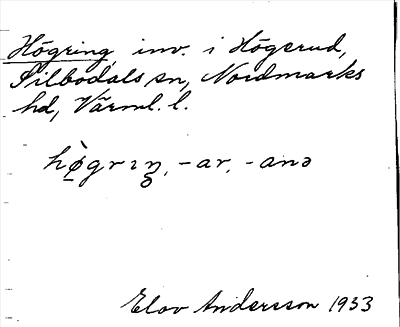 Högring, inv. i Högerud,
Silbodals sn, Nordmarks
hd, Värml. l.
hø̀grıŋ, -ar, -anə
Elov Andersson 1933